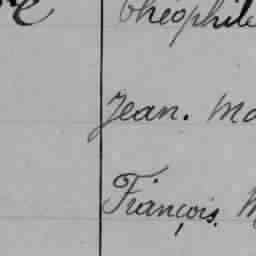 Théophile
Jean. Ma
François. M